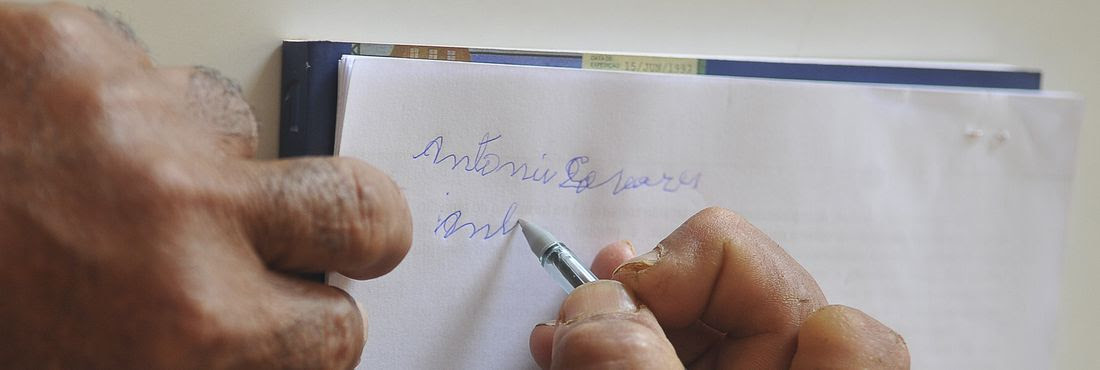 DATA DE
EXPEDIÇÃO 15/JUN/1993
Antonio
Ant